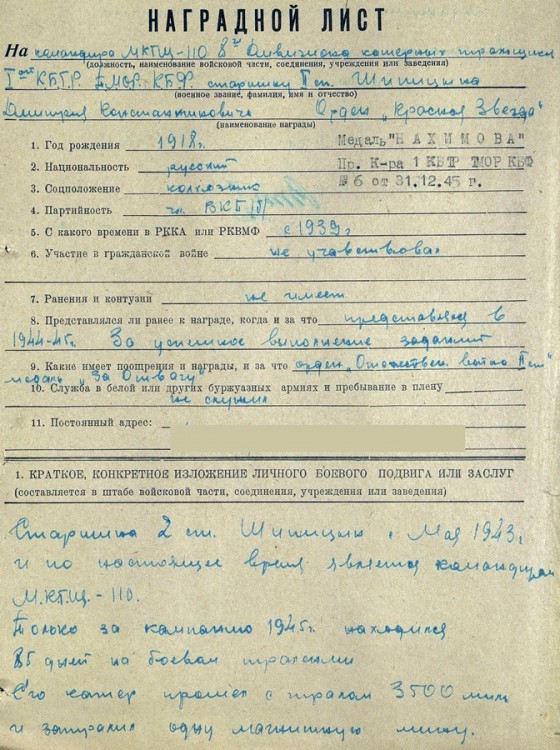 НАГРАДНОЙ ЛИСТ
На командира МКТЩ-110 8го Дивизиона катерных тральщиков
(должность, наименование войсковой части, соединения, учреждения или заведения)
КБТР. ТМОР. КБФ. старшину II ст. Шипицына
(военое звание, фамилия, имя и отчество)
Дмитрия Константиновича Орден „Красная Звезда"
(наименование награды)
1. Год рождения 1918 г.
Медаль "НАХИМОВА"
2. Национальность русский
Пр. К-ра 1 КБТР ТМОР КБФ
3. Соцположение колхозник
№6 от 31.12.45 г.
4. Партийность чл. ВКП(б)
5. С какого времени в РККА или РКВМФ с 1939 г.
6. Участие в гражданской войне не участвовал
7. Ранения и контузии не имеет
8. Представлялся ли ранее к награде, когда и за что представлялся в
1944-45г. За успешное выполнение заданий
9. Какие имеет поощрения и награды, и за что орден „Отечествен. война II ст"
медаль „За Отвагу"
10. Служба в белой или других буржуазных армиях и пребывание в плену
не служил
11. Постоянный адрес:
1. КРАТКОЕ, КОНКРЕТНОЕ ИЗЛОЖЕНИЕ ЛИЧНОГО БОЕВОГО ПОДВИГА ИЛИ ЗАСЛУГ
(составляется в штабе войсковой части, соединения, учреждения или заведения)
Старшина 2 ст. Шипицын с Мая 1943 г
и по настоящее время является командиром
М.КТЩ.-110.
Только за кампанию 1945г. находился
85 дней на боевом тралении
Его катер прошел с тралом 3500 миль
и затралил одну магнитную мину.